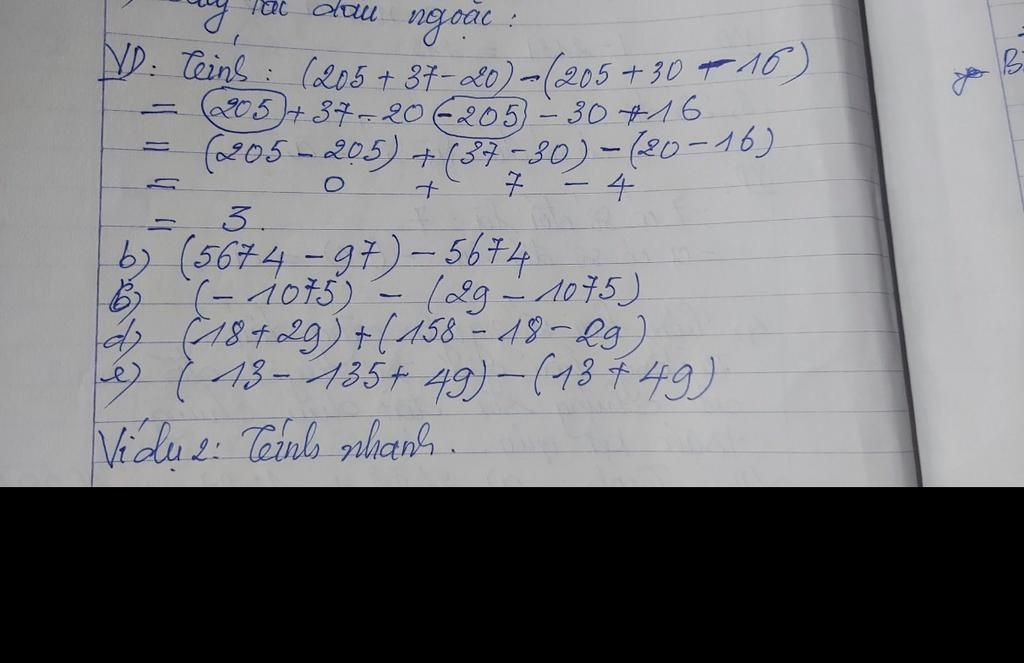 tắc dấu ngoặc :
VD: Tính : (205 + 37 - 20) - (205 + 30 - 16)
= 205 + 37 - 20 - 205 - 30 + 16
= (205 - 205) + (37 - 30) - (20 - 16)
= 0 + 7 - 4
= 3.
b) (5674 - 97) - 5674
c) (- 1075) - (29 - 1075)
d) (18 + 29) + (158 - 18 - 29)
e) (13 - 135 + 49) - (13 + 49)
Ví dụ 2: Tính nhanh.